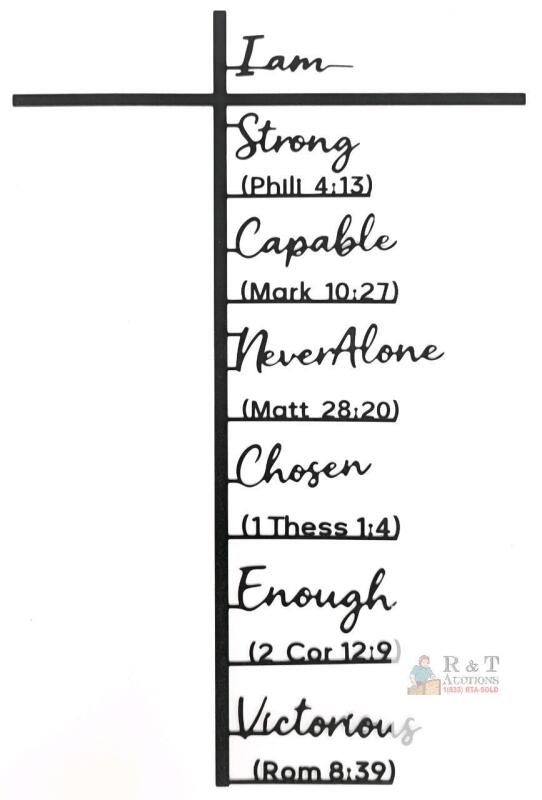 I am
Strong
(Phili 4:13)
Capable
(Mark 10:27)
Never Alone
(Matt 28:20)
Chosen
(1 Thess 1:4)
Enough
(2 Cor 12:9)
R & T
AUCTIONS
1(833) RTA-SOLD
Victorious
(Rom 8:39)